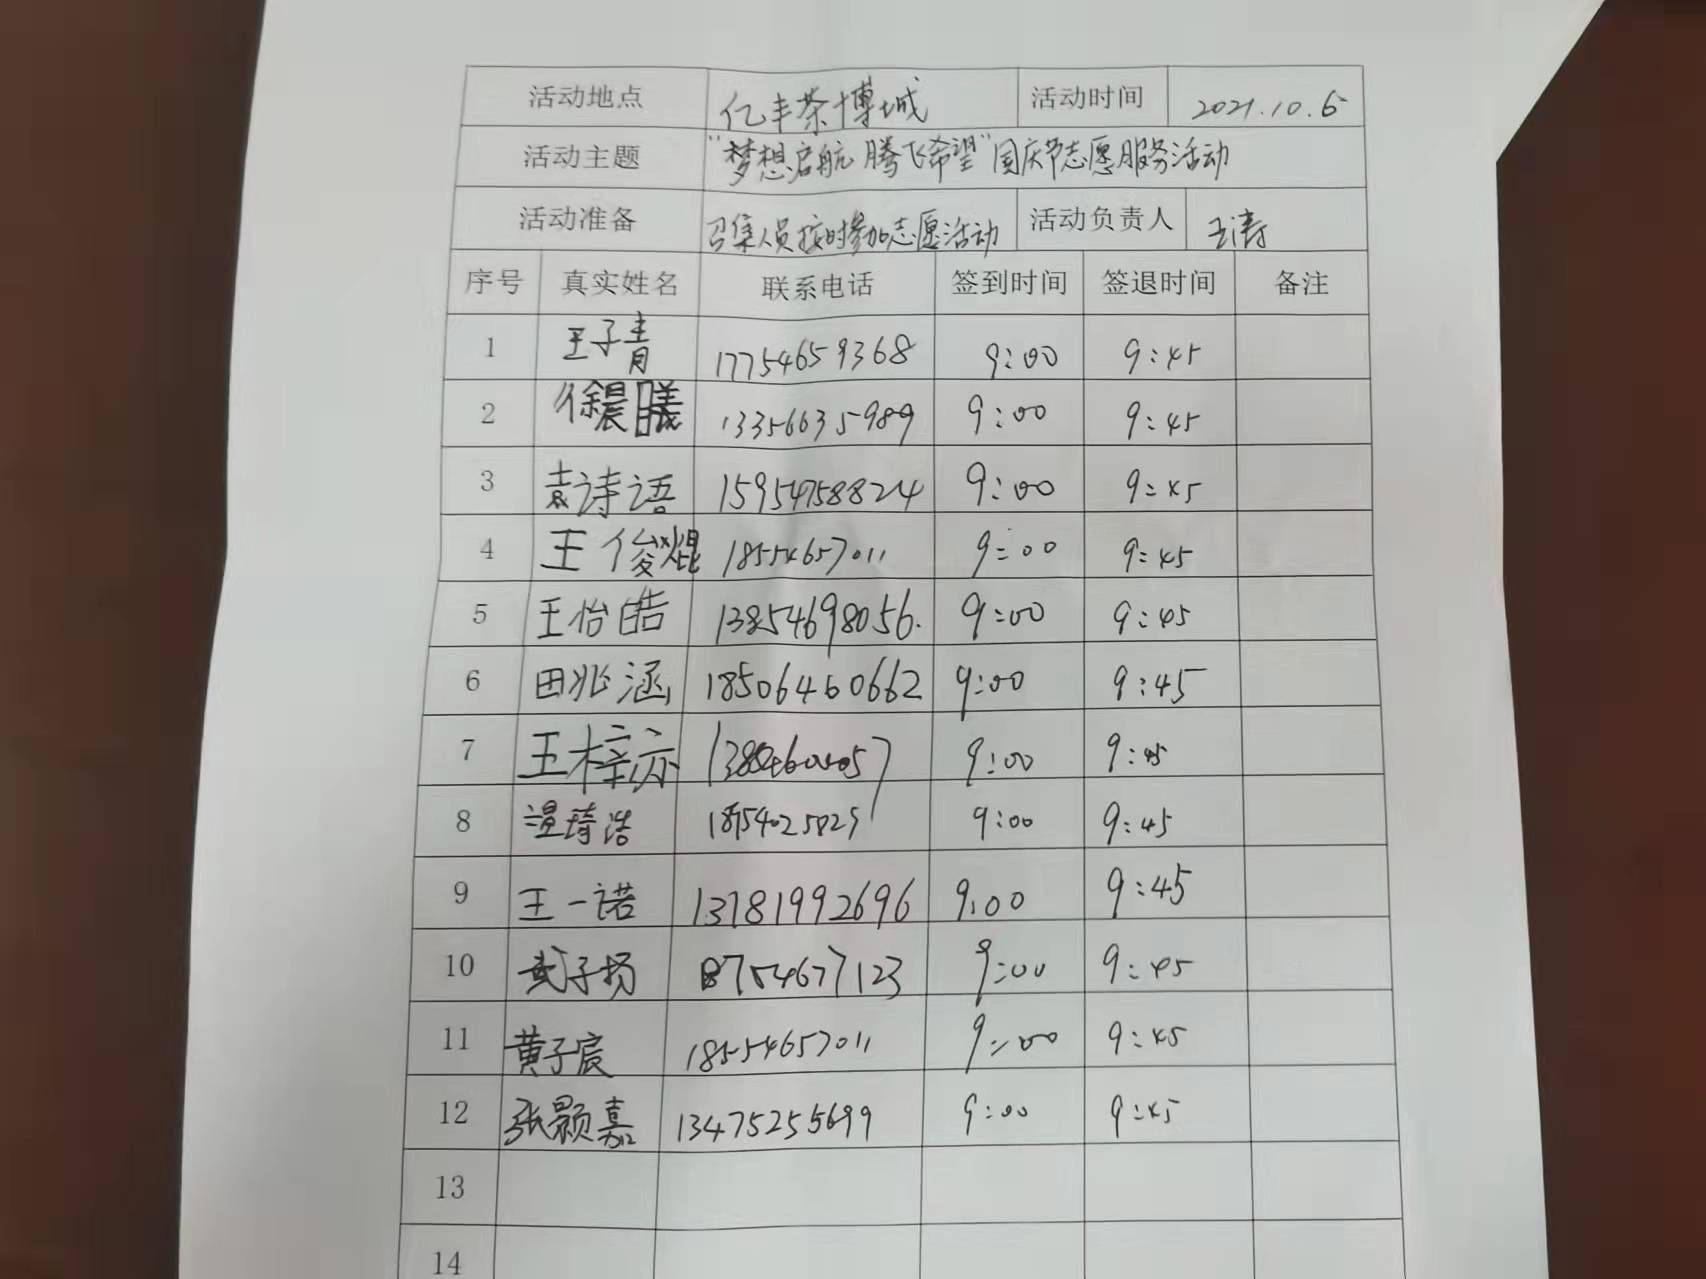 活动地点 亿丰茶博城 活动时间 2021.10.5
活动主题 "梦想启航 腾飞希望"国庆节志愿服务活动
活动准备 召集人员按时参加志愿活动 活动负责人 王涛
序号 真实姓名 联系电话 签到时间 签退时间 备注
1 王子青 17754659368 9:00 9:45
2 徐晨曦 13356635989 9:00 9:45
3 袁诗语 15954758824 9:00 9:45
4 王俊焜 18554657011 9:00 9:45
5 王怡皓 13854698056. 9:00 9:45
6 田兆涵 18506460662 9:00 9:45
7 王梓亦 9:00 9:45
8 温琦浩 9:00 9:45
9 王一诺 13781992696 9:00 9:45
10 武子扬 18754677123 9:00 9:45
11 黄子宸 18554657011 9:00 9:45
12 张颢嘉 13475255699 9:00 9:45
13
14